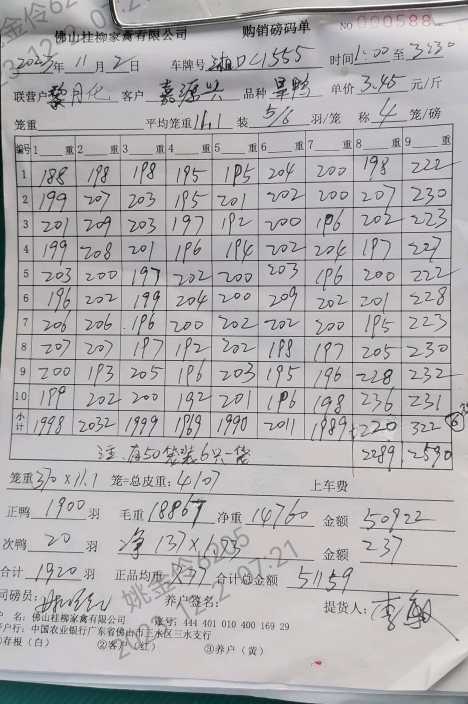 佛山桂柳家禽有限公司 购销磅码单 №000588
2023年11月2日 车牌号 湘DC1555 时间1:00至3:30
联营户 黎月化 客户 嘉源兴 品种 旱鸭 单价 3.45 元/斤
笼重 平均笼重11.1 装 5/6 羽/笼 称 4 笼/磅
编号 1 重 2 重 3 重 4 重 5 重 6 重 7 重 8 重 9 重
1 188 198 198 195 195 204 200 198 222
2 199 207 203 195 201 202 200 207 230
3 201 209 203 197 192 200 196 202 223
4 199 208 201 196 194 202 204 197 227
5 203 200 197 202 200 203 196 200 222
6 196 202 199 204 200 209 202 201 228
7 206 206 196 200 202 202 200 195 223
8 207 207 197 192 202 198 197 205 230
9 200 193 205 196 203 195 196 228 232
10 199 202 200 192 201 196 198 236 231
小计 1998 2032 1999 1969 1990 2011 1989 220 322
注:有50笼装6只一笼 2289 2590
笼重 370×11.1 笼=总皮重:4107 上车费
正鸭 1900 羽 毛重 18867 净重 14760 金额 50922
次鸭 20 羽 净137× 金额 237
合计 1920 羽 正品均重 合计总金额 51159
司磅员: 养户签名: 提货人:
户 名:佛山桂柳家禽有限公司 账号:444 401 010 400 169 29
开户行:中国农业银行广东省佛山市三水区三水支行
①存根(白) ②客户(红) ③养户(黄)